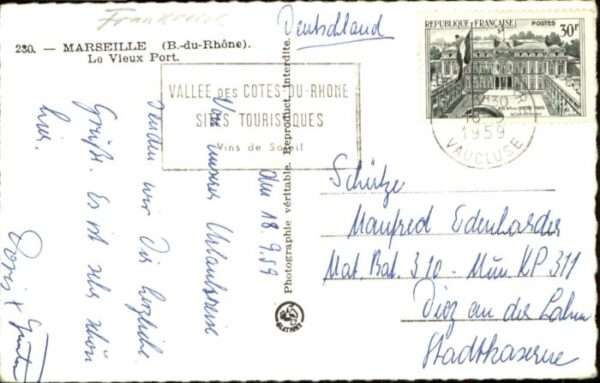 Frankreich
230. — MARSEILLE (B.-du-Rhône).
Le Vieux Port.
Deutschland
REPUBLIQUE FRANÇAISE
POSTES
30F
VALLEE DES COTES-DU-RHONE
SITES TOURISTIQUES
Vins de Soleil
1959
VAUCLUSE
Photographie véritable. Reproduct. interdite.
den 18.9.59
Von unserer Urlaubsreise
senden wir Dir herzliche
Grüße. Es ist sehr schön
hier.
Doris + Günter
Schütze
Manfred Edenharder
Mat. Bat. 310 - Mun. KP 311
Diez an der Lahn
Stadtkaserne